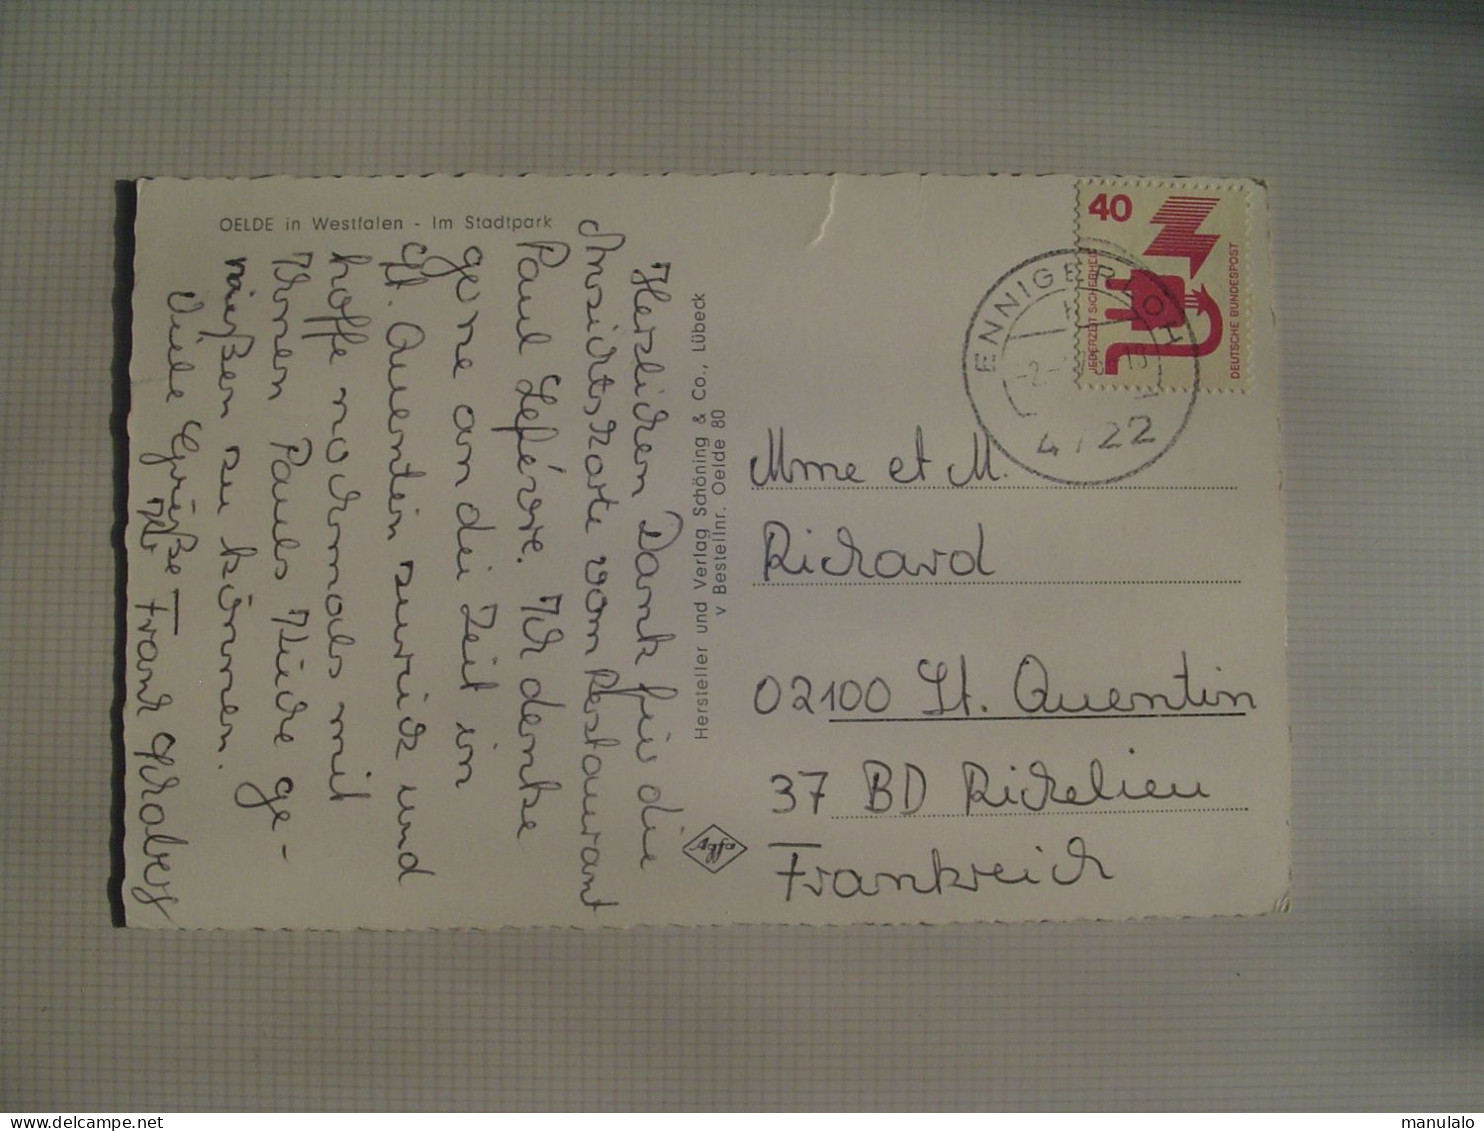 OELDE in Westfalen - Im Stadtpark
Herzlichen Dank für die
Ansichtskarte vom Restaurant
Paul Lefévre. Ich denke
gerne an die Zeit in
St. Quentin zurück und
hoffe nochmals mit
Ihnen Pauls Küche ge-
nießen zu können.
Viele Grüße
Ihr Frank
Hersteller und Verlag Schöning & Co., Lübeck
v Bestellnr. Oelde 80
Agfa
40
JEDERZEIT SICHERHEIT
DEUTSCHE BUNDESPOST
ENNIGERLOH
4722
Mme et M.
Richard
02100 St. Quentin
37 BD Richelieu
Frankreich
www.delcampe.net
manulalo